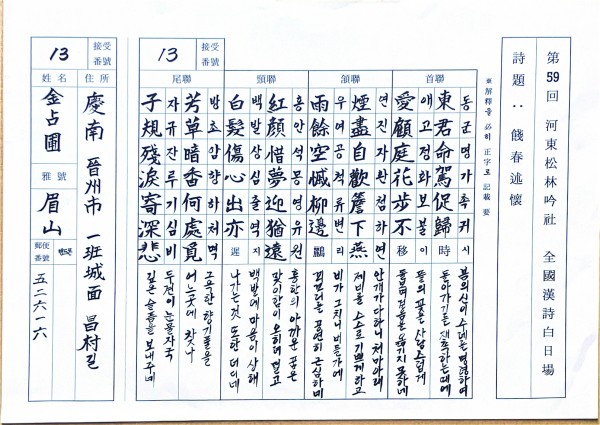 第59回 河東松林吟社 全國漢詩白日場
詩題 : 餞春述懷
※解釋을 必히 正字로 記載 要
接受番號
13
首聯
동군명가촉귀시
東君命駕促歸時
애고정화보불이
愛顧庭花步不移
頷聯
연진자환첨하연
煙盡自歡簷下燕
우여공척류변리
雨餘空慽柳邊鸝
頸聯
홍안석몽영유원
紅顔惜夢迎猶遠
백발상심출역지
白髮傷心出亦遲
尾聯
방초암향하처멱
芳草暗香何處覓
자규잔루기심비
子規殘淚寄深悲
봄의 신이 수레를 명령하여
돌아가기를 재촉하는 때에
뜰의 꽃을 사랑스럽게
돌보며 걸음을 옮기지 못하네
안개가 다하니 처마 아래
제비를 스스로 기쁘게 하고
비가 그치니 버들가에
꾀꼬리는 공연히 근심하며
홍안의 아까운 꿈은
맞이함이 오히려 멀고
백발에 마음이 상해
나가는 것 또한 더디네
그윽한 향기 풀을
어느 곳에 찾나
두견이 눈물 자국
깊은 슬픔을 보내주네
接受番號
13
住所
慶南 晉州市 一班城面 昌村길
姓名
金占圃
雅號
眉山
郵便番號
五二六一六